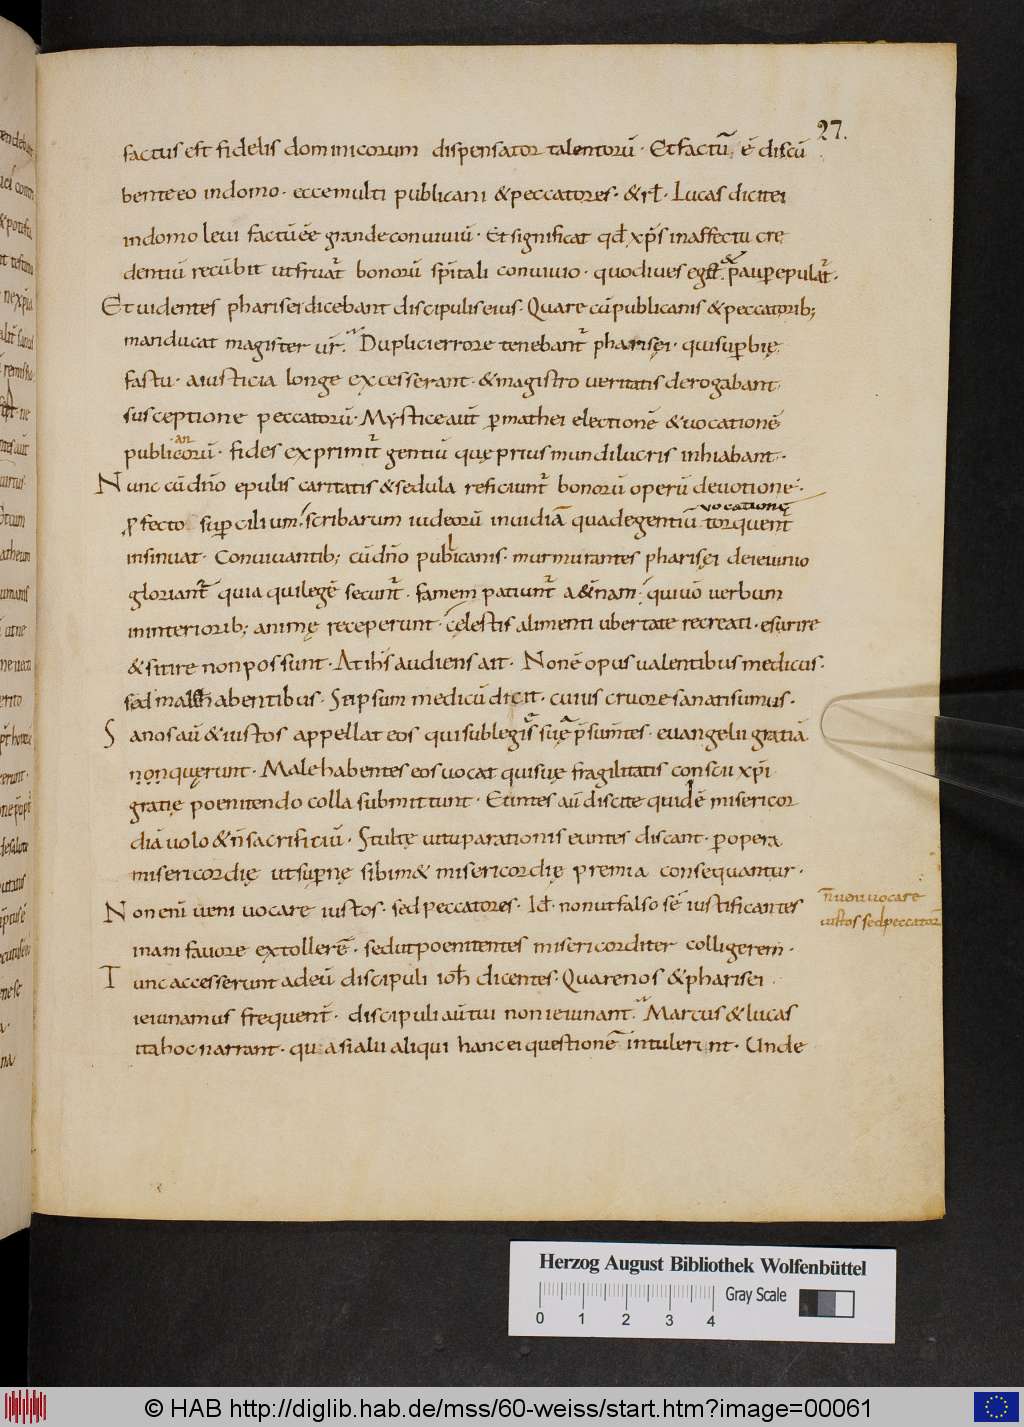 27.
factus est fidelis dominicorum dispensator talentorū · Et factū ē discū
bente eo indomo · ecce multi publicani & peccatores · & rł · Lucas dicit ei
indomo leui factū ēē grande conuiuiū · Et significat qđ xp̄s inaffectu cre
dentiū recūbit ut fruat̃ bonorū sp̄itali conuiuio ·
Et uidentes pharisei dicebant discipulis eius · Quare cū publicanis & peccatorib;
manducat magister ur̄ · Duplici errore tenebant̃ pharisęi · qui suꝑbię
fastu · a iusticia longe excesserant · & magistro ueritatis derogabant
susceptione peccatorū · Mystice aut̄ ꝑ mathei electionē & uocationē
an
publicorū · fides exprimit̃ gentiū quę prius mundi lucris inhiabant ·
Nunc cū dn̄o epulis caritatis & sedula reficiunt̃ bonorū operū deuotione ·
uocatione
ꝓfecto suꝑcilium scribarum iudeorū inuidiā qua de gentiū torquent̃
insinuat · Conuiuantib; cū dn̄o publicanis · murmurantes pharisęi de ieiunio
gloriant̃ quia qui legē secunt̃ · famem patiunt̃ a&n̄nam · qui uō uerbum
in interiorib; animę receperunt · cęlestis alimenti ubertate recreati · esurire
& sitire non possunt · At ih̄s audiens ait · Non ē opus ualentibus medicus ·
sed male habentibus · Se ipsum medicū dicit · cuius cruore sanati sumus ·
Sanos aū & iustos appellat eos qui sub legis suę p̄sūmtes · euangelii gratiā
non quęrunt · Male habentes eos uocat qui suę fragilitatis conscii xp̄i
gratię poenitendo colla submittunt · Euntes aū discite quid ē misericor
diā uolo & n̄ sacrificiū · Stultę uituparationis euntes discant · ꝑ opera
misericordię ut suꝑnę sibim& misericordię premia consequantur ·
Non eni ueni uocare iustos · sed peccatores · Id · non ut falso sē iustificantes
n̄ ueni uocare
iustos sed peccator̄
inani fauore extollerē · sed ut poenitentes misericorditer colligerem ·
Tunc accesserunt ad eū discipuli ioh̄ dicentes · Quare nos & pharisei
ieiunamus frequent̄ · discipuli aū tui non ieiunant · Marcus & lucas
ita hoc narrant · quasi alii aliqui hanc ei questionē intulerint · Unde
Herzog August Bibliothek Wolfenbüttel
Gray Scale
0 1 2 3 4
© HAB http://diglib.hab.de/mss/60-weiss/start.htm?image=00061